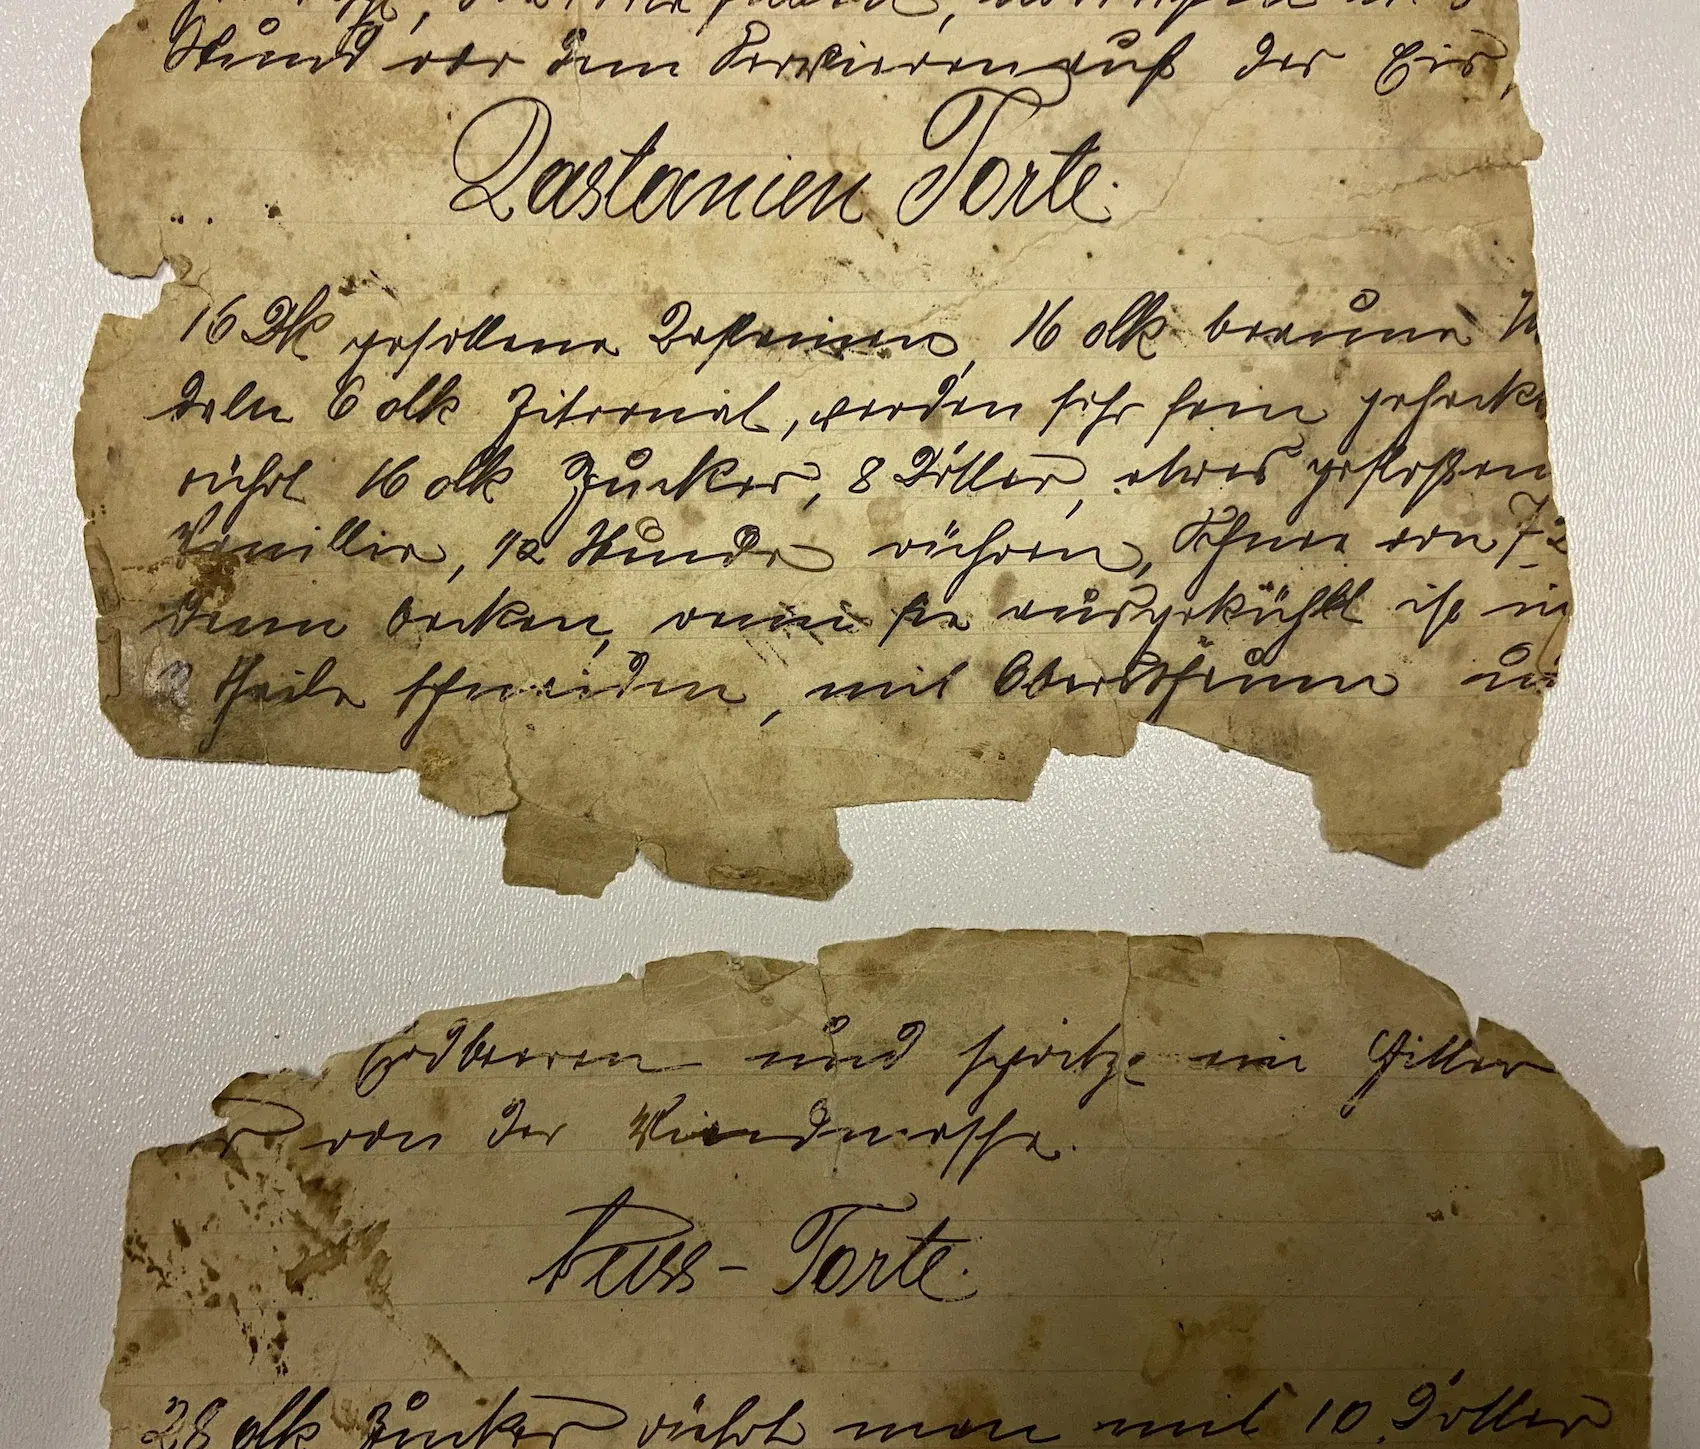 Stund vor dem Servieren auf das Eis,
Kastanien Torte.
16 Dk gesottene Kastanien, 16 dk braune
deln 6 dk Zitronat, werden sehr fein gehackt
rührt 16 dk Zucker, 8 Dotter, etwas gestoßen
Vanillie, 1/2 Stunde rühren, Schnee von 7
dann backen, wenn sie ausgekühlt ist in
2 Theile schneiden, mit Oberschaum
Erdbeeren und spritze ein Gitter
von der Windmasse.
Nuss-Torte.
28 dk Zucker rührt man mit 10 Dotter